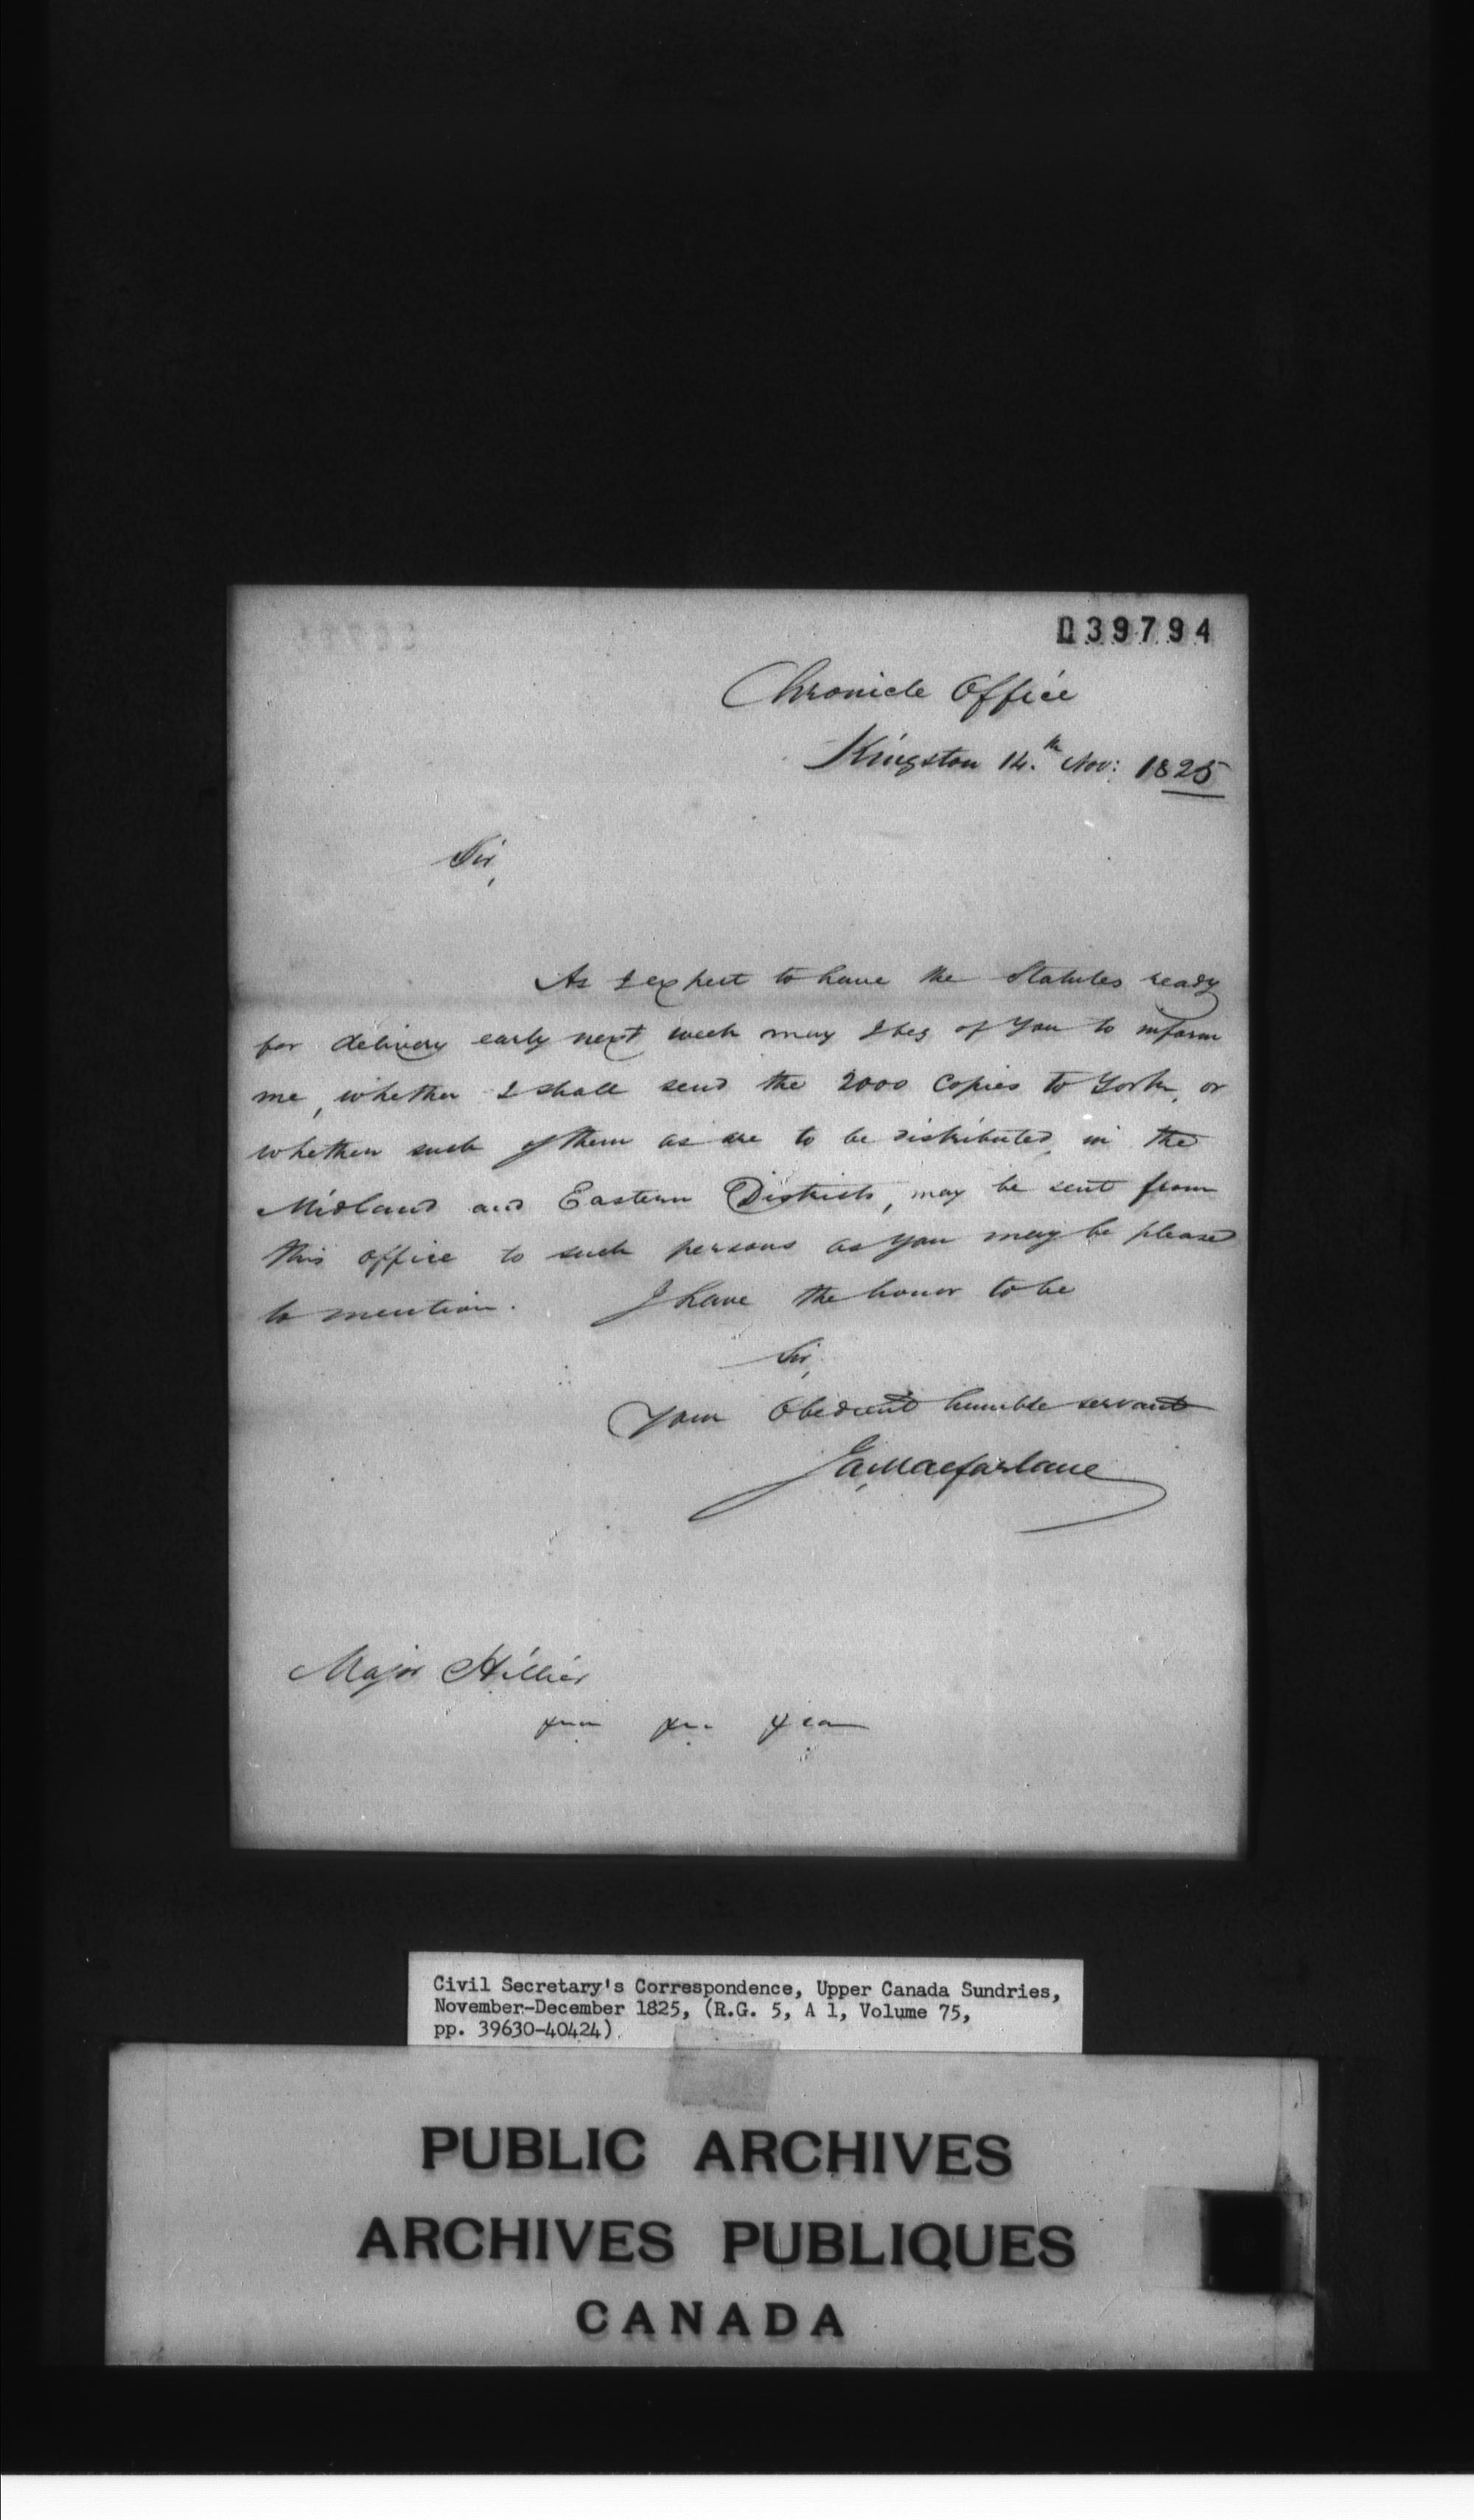 039794
Chronicle Office
Kingston 14.th Nov: 1825
Sir,
As I expect to have the Statutes ready
for delivery early next week may I beg of You to inform
me, whether I shall send the 2000 Copies to York, or
whether such of them as are to be distributed, in the
Midland and Eastern Districts, may be sent from
this office to such persons as you may be pleased
to mention. I have the honor to be
Sir,
Your Obedient humble servant
Ja. Macfarlane
Major Hillier
Civil Secretary's Correspondence, Upper Canada Sundries,
November-December 1825, (R.G. 5, A 1, Volume 75,
pp. 39630-40424)
PUBLIC ARCHIVES
ARCHIVES PUBLIQUES
CANADA